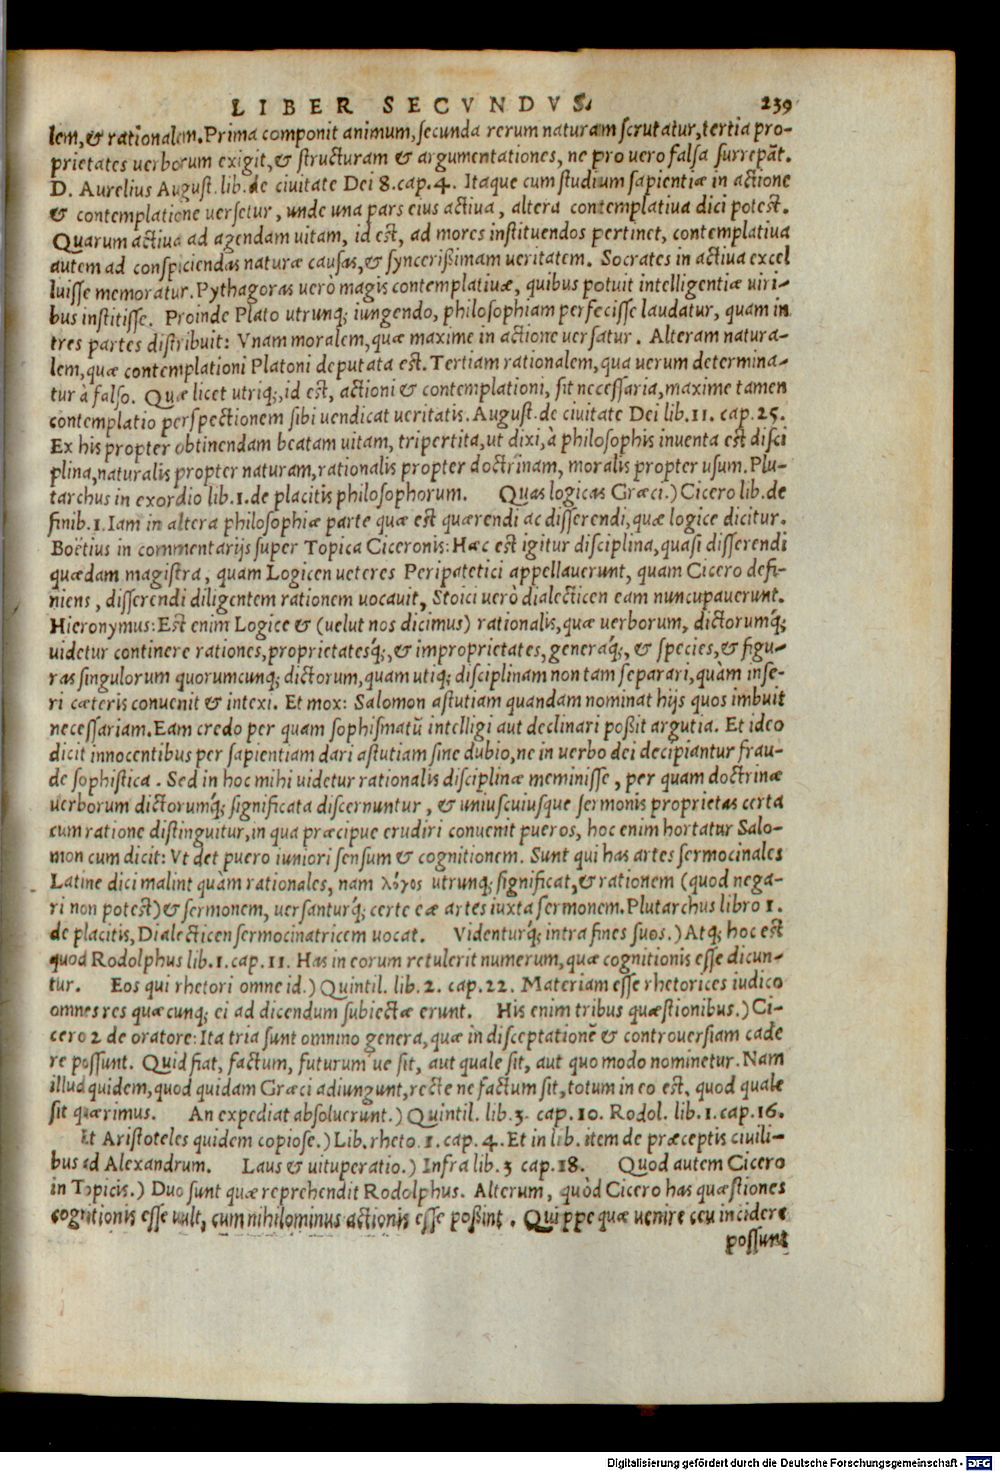 LIBER SECVNDVS. 239
lem, & rationalem. Prima componit animum, secunda rerum naturam scrutatur, tertia pro-
prietates uerborum exigit, & structuram & argumentationes, ne pro uero falsa surrepāt.
D. Aurelius August. lib. de ciuitate Dei 8. cap. 4. Itaque cum studium sapientiæ in actione
& contemplatione uersetur, unde una pars eius actiua, altera contemplatiua dici potest.
Quarum actiua ad agendam uitam, id est, ad mores instituendos pertinet, contemplatiua
autem ad conspiciendas naturæ causas, & syncerißimam ueritatem. Socrates in actiua excel
luisse memoratur. Pythagoras uerò magis contemplatiuæ, quibus potuit intelligentiæ uiri-
bus institisse. Proinde Plato utrunq; iungendo, philosophiam perfecisse laudatur, quam in
tres partes distribuit: Vnam moralem, quæ maxime in actione uersatur. Alteram natura-
lem, quæ contemplationi Platoni deputata est. Tertiam rationalem, qua uerum determina-
tur à falso. Quæ licet utriq;, id est, actioni & contemplationi, sit necessaria, maxime tamen
contemplatio perspectionem sibi uendicat ueritatis. August. de ciuitate Dei lib. 11. cap. 25.
Ex his propter obtinendam beatam uitam, tripertita, ut dixi, à philosophis inuenta est disci
plina, naturalis propter naturam, rationalis propter doctrinam, moralis propter usum. Plu-
tarchus in exordio lib. 1. de placitis philosophorum. Quas logicas Græci.) Cicero lib. de
finib. 1. Iam in altera philosophiæ parte quæ est quærendi ac disserendi, quæ logice dicitur.
Boëtius in commentarijs super Topica Ciceronis: Hæc est igitur disciplina, quasi disserendi
quædam magistra, quam Logicen ueteres Peripatetici appellauerunt, quam Cicero defi-
niens, disserendi diligentem rationem uocauit, Stoici uerò dialecticen eam nuncupauerunt.
Hieronymus: Est enim Logice & (uelut nos dicimus) rationalis, quæ uerborum, dictorumq́;
uidetur continere rationes, proprietatesq́;, & improprietates, generaq́;, & species, & figu-
ras singulorum quorumcunq; dictorum, quam utiq; disciplinam non tam separari, quàm inse-
ri cæteris conuenit & intexi. Et mox: Salomon astutiam quandam nominat hijs quos imbuit
necessariam. Eam credo per quam sophismatū intelligi aut declinari poßit argutia. Et ideo
dicit innocentibus per sapientiam dari astutiam sine dubio, ne in uerbo dei decipiantur frau-
de sophistica. Sed in hoc mihi uidetur rationalis disciplinæ meminisse, per quam doctrinæ
uerborum dictorumq́; significata discernuntur, & uniuscuiusque sermonis proprietas certa
cum ratione distinguitur, in qua præcipue erudiri conuenit pueros, hoc enim hortatur Salo-
mon cum dicit: Vt det puero iuniori sensum & cognitionem. Sunt qui has artes sermocinales
Latine dici malint quàm rationales, nam λόγος utrunq; significat, & rationem (quod nega-
ri non potest) & sermonem, uersanturq́; certe eæ artes iuxta sermonem. Plutarchus libro 1.
de placitis, Dialecticen sermocinatricem uocat. Videnturq́; intra fines suos.) Atq; hoc est
quod Rodolphus lib. 1. cap. 11. Has in eorum retulerit numerum, quæ cognitionis esse dicun-
tur. Eos qui rhetori omne id.) Quintil. lib. 2. cap. 22. Materiam esse rhetorices iudico
omnes res quæcunq; ei ad dicendum subiectæ erunt. His enim tribus quæstionibus.) Ci-
cero 2 de oratore: Ita tria sunt omnino genera, quæ in disceptationē & controuersiam cade
re possunt. Quid fiat, factum, futurum ue sit, aut quale sit, aut quo modo nominetur. Nam
illud quidem, quod quidam Græci adiungunt, recte ne factum sit, totum in eo est, quod quale
sit quærimus. An expediat absoluerunt.) Quintil. lib. 3. cap. 10. Rodol. lib. 1. cap. 16.
Et Aristoteles quidem copiose.) Lib. rheto. 1. cap. 4. Et in lib. item de præceptis ciuili-
bus ad Alexandrum. Laus & uituperatio.) Infra lib. 3 cap. 18. Quod autem Cicero
in Topicis.) Duo sunt quæ reprehendit Rodolphus. Alterum, quòd Cicero has quæstiones
cognitionis esse uult, cum nihilominus actionis esse poßint. Quippe quæ uenire ceu incidere
possunt
Digitalisierung gefördert durch die Deutsche Forschungsgemeinschaft - DFG